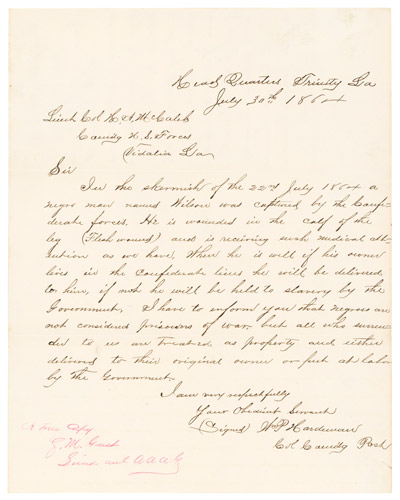 Head Quarters Trinity La
July 30th 1864
Lieut Col H A McCaleb
Comdg U. S. Forces
Vidalia La
Sir
In the skirmish of the 22nd July 1864 a
negro man named Wilson was captured by the Confe-
derate forces. He is wounded in the calf of the
leg (Flesh wound) and is reciving such medical at-
tention as we have, When he is well if his owner
lives in the Confederate lines he will be delivered
to him, if not he will be held to slavery by the
Government. I have to inform you that negroes are
not considered prisoners of war. but all who surren-
der to us are treated as property and either
delivered to their original owner or put at labor
by the Government.
I am very respectfully
Your Obedient Servant
(Signed) W P Hardeman
Col Comdg Post
A true Copy
Lieut and A A A G